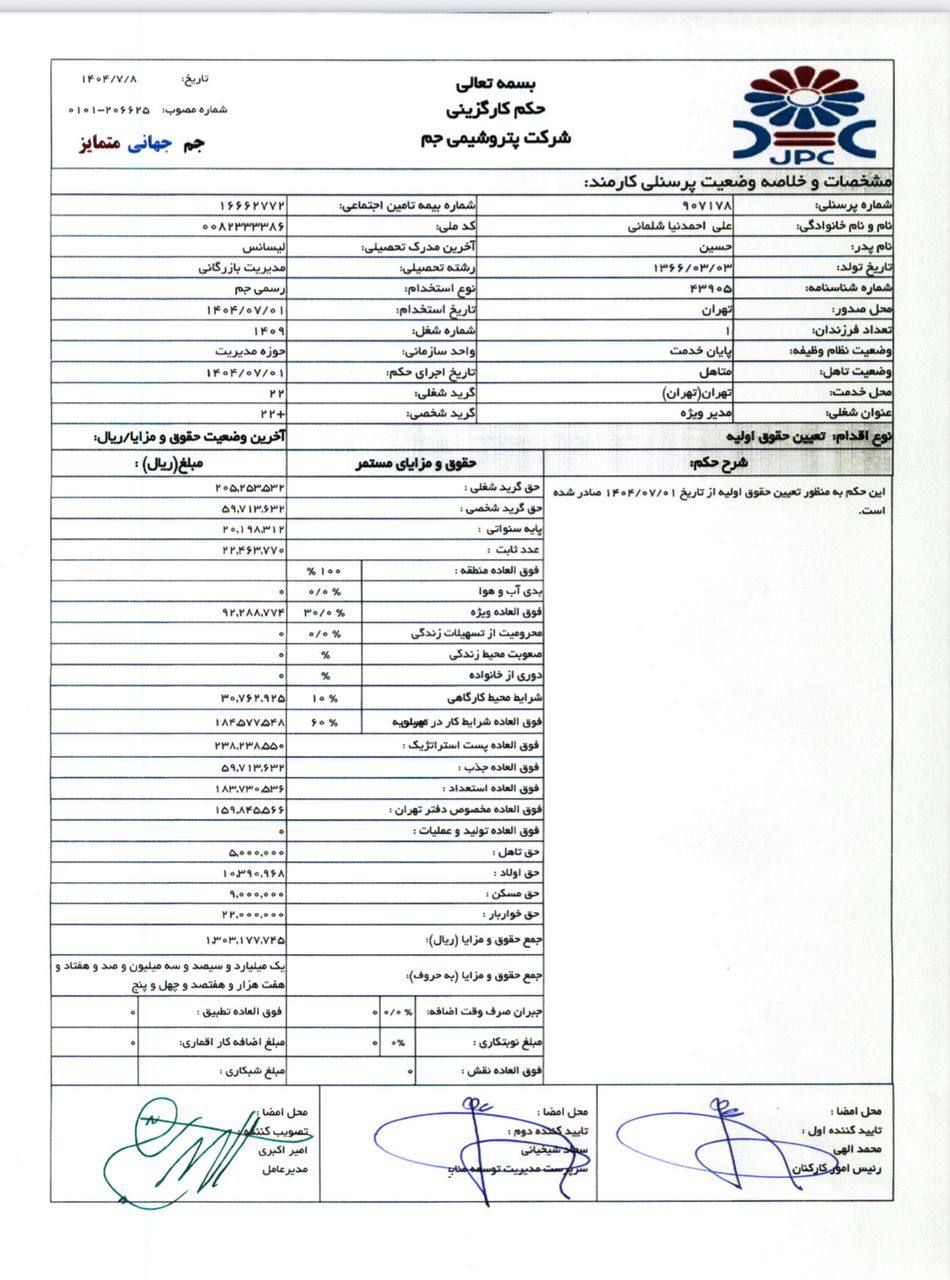 بسمه تعالی
حکم کارگزینی
شرکت پتروشیمی جم
JPC
تاریخ: ۱۴۰۴/۷/۸
شماره مصوب: ۰۱۰۱-۲۰۶۶۲۵
جم جهانی متمایز
مشخصات و خلاصه وضعیت پرسنلی کارمند:
شماره پرسنلی: ۹۰۷۱۷۸ شماره بیمه تامین اجتماعی: ۱۶۶۶۲۷۷۲
نام و نام خانوادگی: علی احمدنیا شلمانی کد ملی: ۰۰۸۲۳۳۳۳۸۶
نام پدر: حسین آخرین مدرک تحصیلی: لیسانس
تاریخ تولد: ۱۳۶۶/۰۳/۰۳ رشته تحصیلی: مدیریت بازرگانی
شماره شناسنامه: ۴۳۹۰۵ نوع استخدام: رسمی جم
محل صدور: تهران تاریخ استخدام: ۱۴۰۴/۰۷/۰۱
تعداد فرزندان: ۱ شماره شغل: ۱۴۰۹
وضعیت نظام وظیفه: پایان خدمت واحد سازمانی: حوزه مدیریت
وضعیت تاهل: متاهل تاریخ اجرای حکم: ۱۴۰۴/۰۷/۰۱
محل خدمت: تهران(تهران) گرید شغلی: ۲۲
عنوان شغلی: مدیر ویژه گرید شخصی: ۲۲+
نوع اقدام: تعیین حقوق اولیه آخرین وضعیت حقوق و مزایا/ریال:
شرح حکم: حقوق و مزایای مستمر مبلغ(ریال) :
این حکم به منظور تعیین حقوق اولیه از تاریخ ۱۴۰۴/۰۷/۰۱ صادر شده
است.
حق گرید شغلی : ۲۰۵,۲۵۳,۵۳۲
حق گرید شخصی : ۵۹,۷۱۳,۶۳۲
پایه سنواتی : ۲۰,۱۹۸,۳۱۲
عدد ثابت : ۲۲,۴۶۳,۷۷۰
فوق العاده منطقه : ۱۰۰ %
بدی آب و هوا ۰/۰ % ۰
فوق العاده ویژه ۳۰/۰ % ۹۲,۲۸۸,۷۷۴
محرومیت از تسهیلات زندگی ۰/۰ % ۰
صعوبت محیط زندگی % ۰
دوری از خانواده % ۰
شرایط محیط کارگاهی ۱۰ % ۳۰,۷۶۲,۹۲۵
فوق العاده شرایط کار در ۶۰ % ۱۸۴,۵۷۷,۵۴۸
فوق العاده پست استراتژیک : ۲۳۸,۲۳۸,۵۵۰
فوق العاده جذب : ۵۹,۷۱۳,۶۳۲
فوق العاده استعداد : ۱۸۳,۷۳۰,۵۳۶
فوق العاده مخصوص دفتر تهران : ۱۵۹,۸۴۵,۵۶۶
فوق العاده تولید و عملیات : ۰
حق تاهل : ۵,۰۰۰,۰۰۰
حق اولاد : ۱۰,۳۹۰,۹۶۸
حق مسکن : ۹,۰۰۰,۰۰۰
حق خواربار : ۲۲,۰۰۰,۰۰۰
جمع حقوق و مزایا (ریال): ۱,۳۰۳,۱۷۷,۷۴۵
جمع حقوق و مزایا (به حروف): یک میلیارد و سیصد و سه میلیون و صد و هفتاد و
هفت هزار و هفتصد و چهل و پنج
جبران صرف وقت اضافه: ۰/۰ % ۰ فوق العاده تطبیق : ۰
مبلغ نوبتکاری : ۰% ۰ مبلغ اضافه کار اقماری: ۰
فوق العاده نقش : ۰ مبلغ شبکاری :
محل امضا :
تایید کننده اول :
محمد الهی
رئیس امور کارکنان
محل امضا :
تایید کننده دوم :
سجاد شیخیانی
سرپرست مدیریت توسعه
محل امضا :
تصویب کننده :
امیر اکبری
مدیرعامل